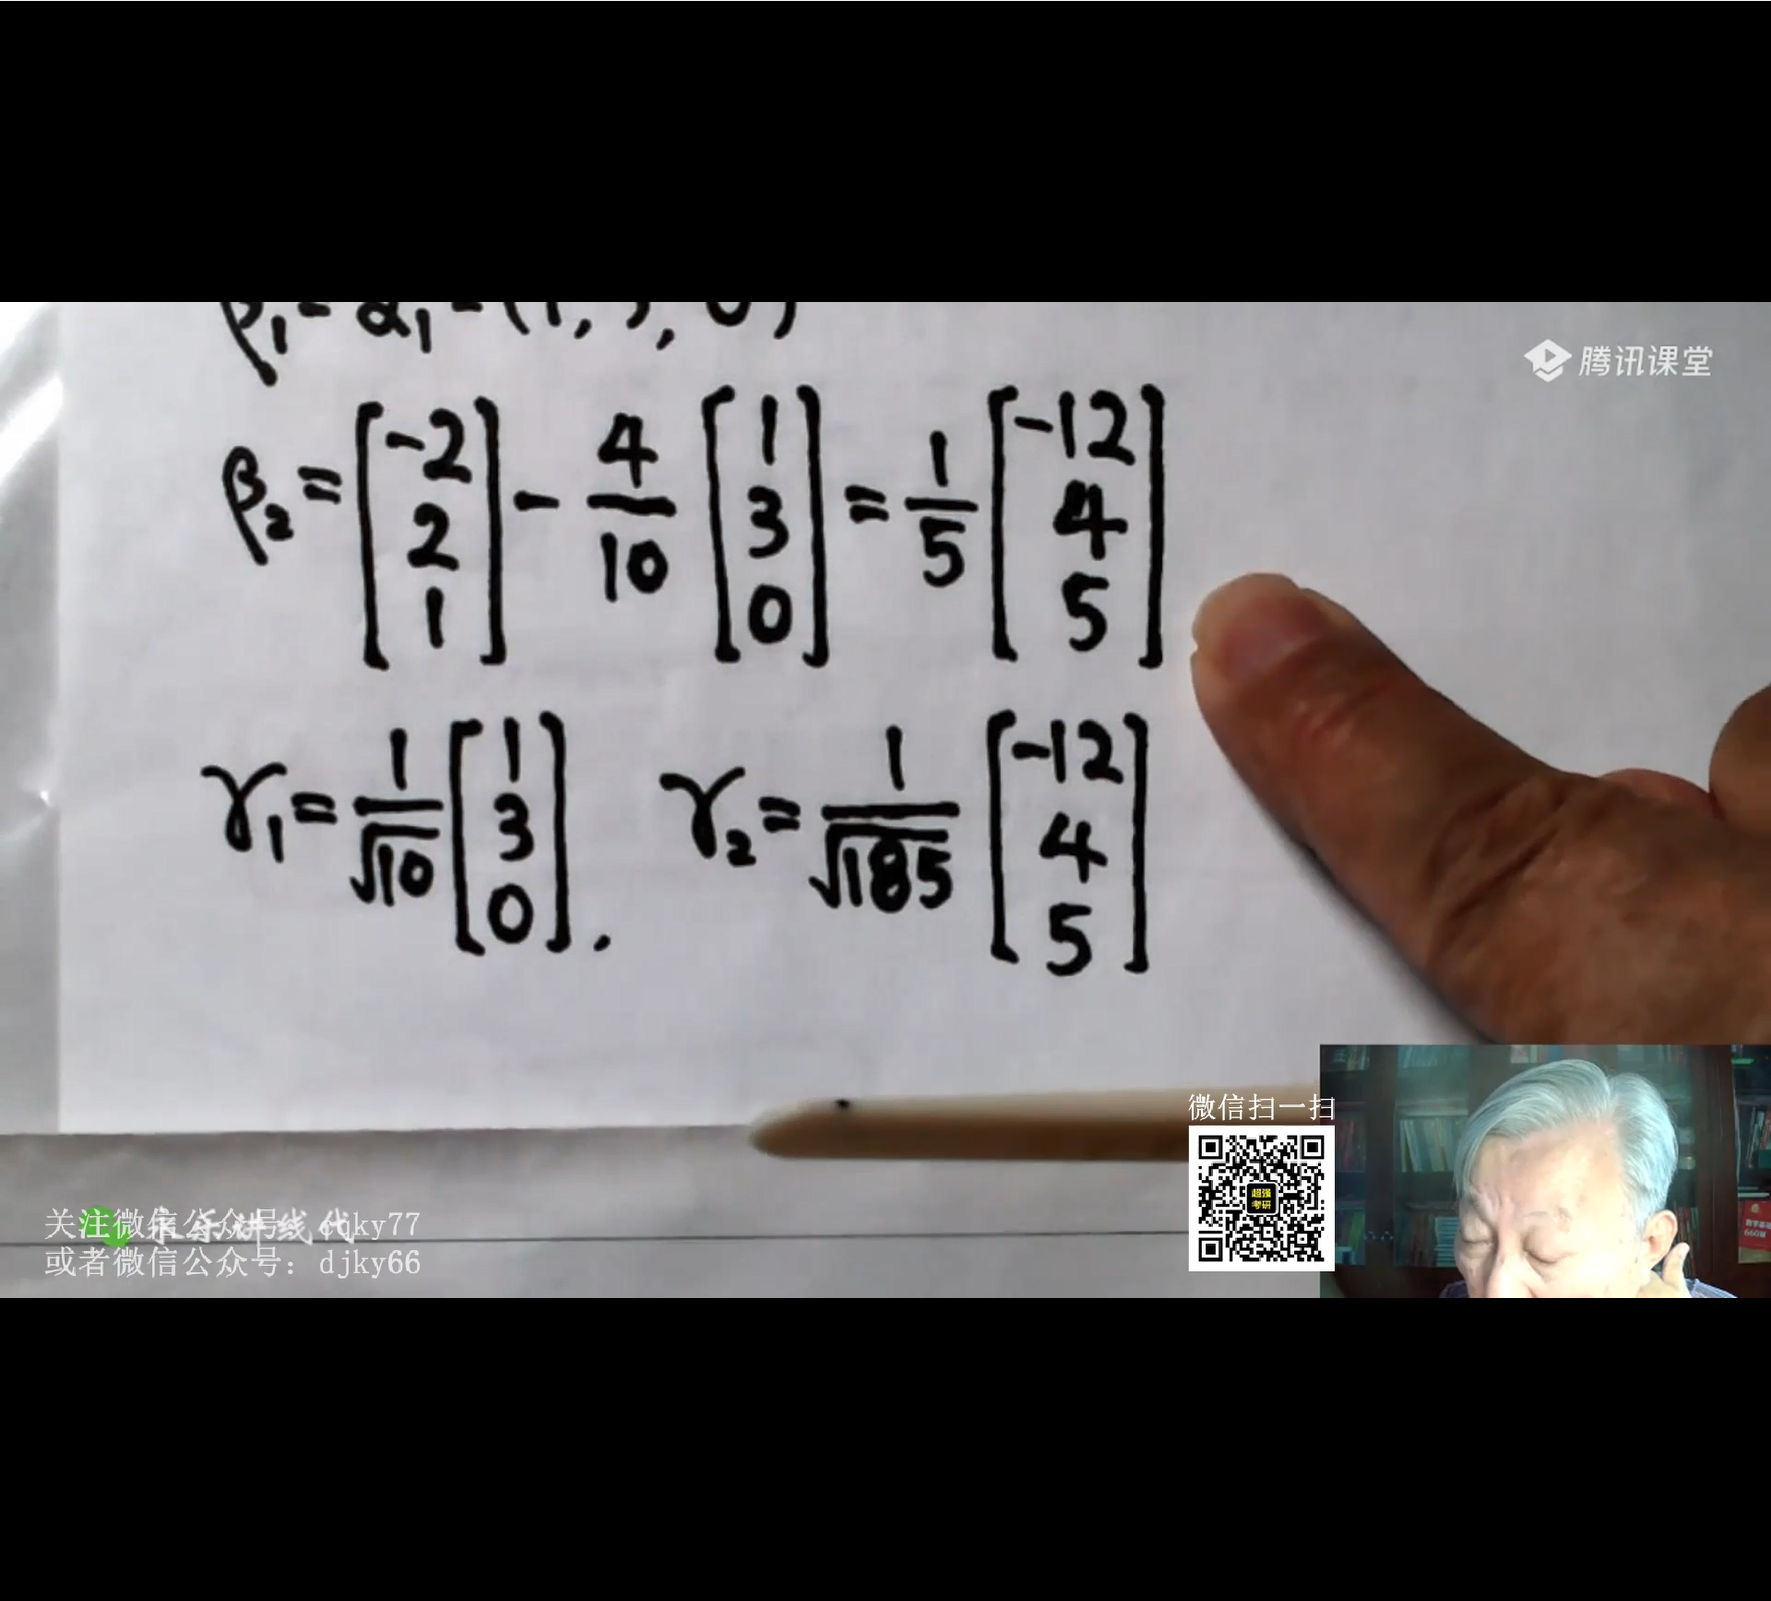 β₁=α₁=(1,3,0)
腾讯课堂
β₂=[-2 2 1]-4/10[1 3 0]=1/5[-12 4 5]
γ₁=1/√10[1 3 0], γ₂=1/√185[-12 4 5]
微信扫一扫
超强
考研
永乐讲线代
关注微信公众号:
ky77
或者微信公众号: djky66